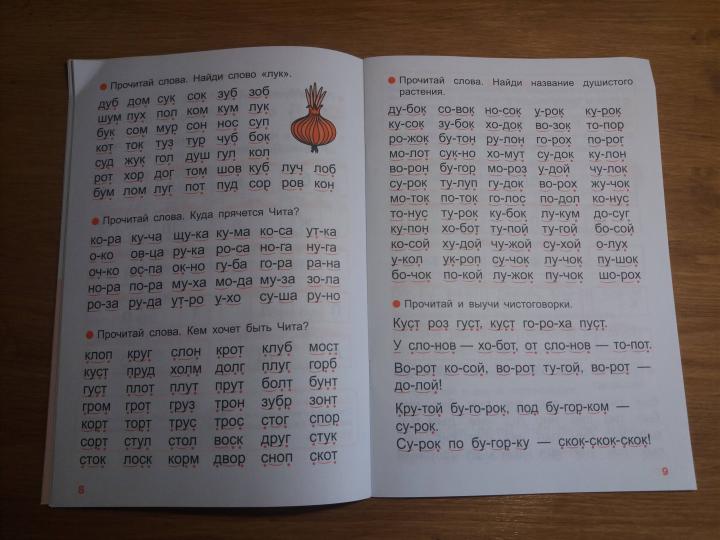 Прочитай слова. Найди слово «лук».
дуб дом сук сок зуб зоб
шум пух пол ком кум лук
бук сом мур сон нос суп
кот ток туз тур чуб бок
суд жук гол душ гул кол
рот хор дог том шов куб луч лоб
бум лом луг пот пуд сор ров кон
Прочитай слова. Куда прячется Чита?
ко-ра ку-ча щу-ка ку-ма ко-са ут-ка
о-ко ов-ца ру-ка ро-са но-га ну-га
оч-ко ос-па ок-но гу-ба го-ра ра-на
но-ра по-ра му-ха мо-да му-за зо-ла
ро-за ру-да ут-ро у-хо су-ша ру-но
Прочитай слова. Кем хочет быть Чита?
клоп круг слон крот клуб мост
куст пруд холм долг плуг горб
густ плот плут прут болт бунт
гром грот груз трон зубр зонт
корт торт трус трос стог спор
сорт стул стол воск друг стук
сток лоск корм двор сноп скот
8
Прочитай слова. Найди название душистого
растения.
ду-бок со-вок но-сок у-рок ку-рок
ку-сок зу-бок хо-док во-зок то-пор
ро-жок бу-тон ру-лон го-рох по-рог
мо-лот сук-но хо-мут су-док ку-лон
во-рон бу-гор мо-роз у-дой чу-лок
су-рок ту-луп гу-док во-рох жу-чок
мо-ток по-ток го-лос по-дол ко-нус
то-нус ту-рок ку-бок лу-кум до-суг
ку-пон хо-бот ту-пой ту-гой бо-сой
ко-сой ху-дой чу-жой су-хой о-лух
у-кол ук-роп су-чок лу-чок пу-шок
бо-чок по-кой лу-жок пу-чок шо-рох
Прочитай и выучи чистоговорки.
Куст роз густ, куст го-ро-ха пуст.
У сло-нов — хо-бот, от сло-нов — то-пот.
Во-рот ко-сой, во-рот ту-гой, во-рот —
до-лой!
Кру-той бу-го-рок, под бу-гор-ком —
су-рок.
Су-рок по бу-гор-ку — скок-скок-скок!
9